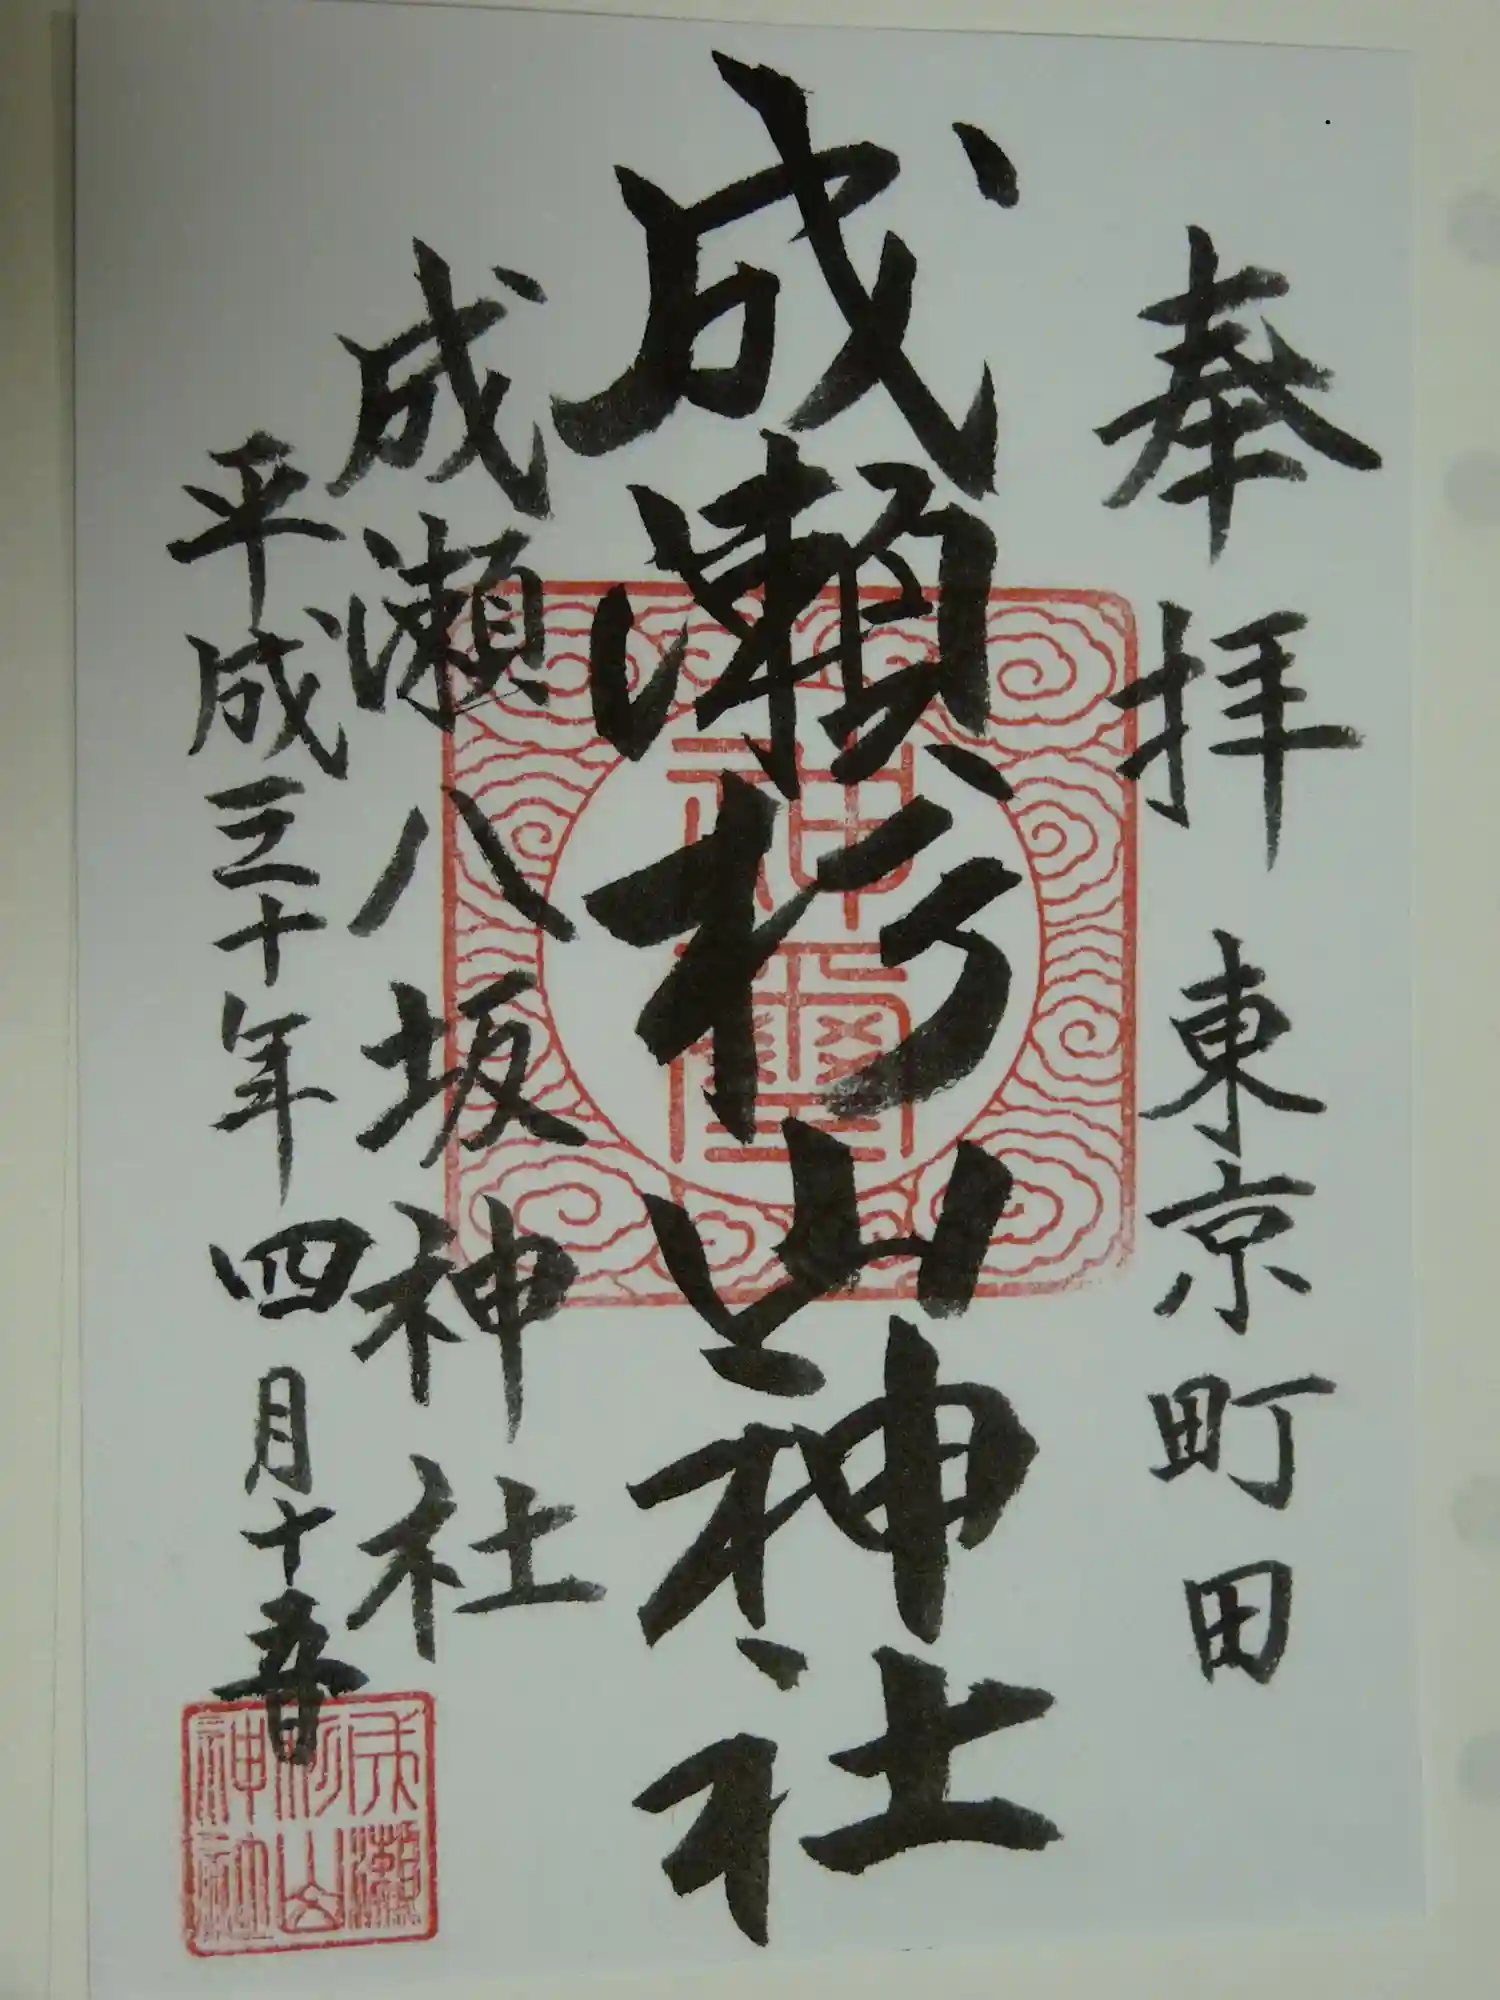 奉拝　東京町田
成瀬杉山神社
成瀬八坂神社
平成三十年四月十五日
神璽
成瀬
杉山
神社